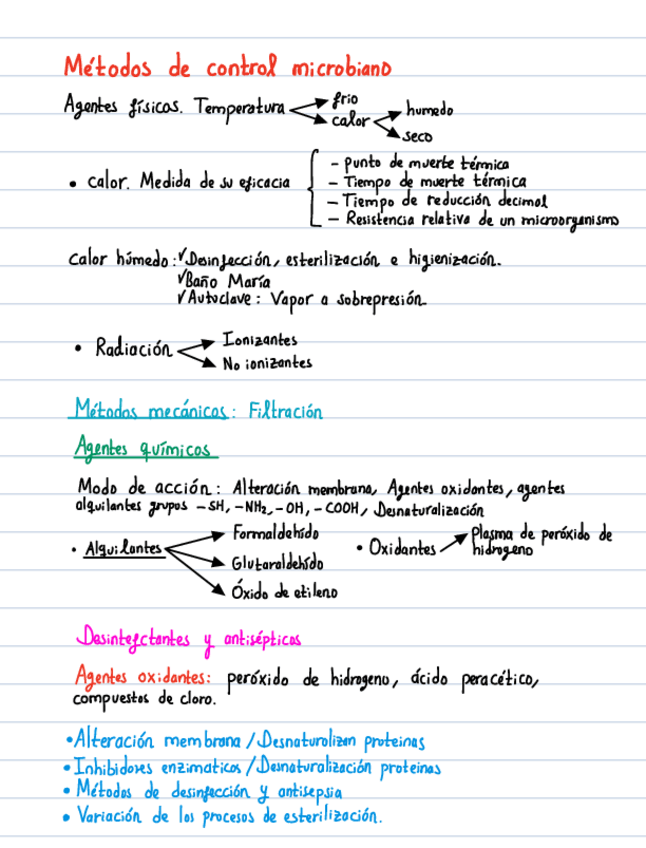 Métodos de control microbiano
Agentes físicos. Temperatura frio
calor humedo
seco
• Calor. Medida de su eficacia
- Punto de muerte térmica
- Tiempo de muerte térmica
- Tiempo de reducción decimal
- Resistencia relativa de un microorganismo
Calor húmedo: ✓Desinfección, esterilización e higienización.
✓Baño María
✓Autoclave: Vapor a sobrepresión
• Radiación Ionizantes
No ionizantes
Métodos mecánicos: Filtración
Agentes químicos
Modo de acción: Alteración membrana, Agentes oxidantes, agentes
alquilantes grupos -SH, -NH₂, -OH, -COOH, Desnaturalización
• Alquilantes Formaldehído
Glutaraldehído
Óxido de etileno
• Oxidantes Plasma de peróxido de
hidrogeno
Desinfectantes y antisépticos
Agentes oxidantes: peróxido de hidrogeno, ácido peracético,
compuestos de cloro.
•Alteración membrana/Desnaturalizan proteinas
•Inhibidores enzimaticos/Desnaturalización proteinas
• Métodos de desinfección y antisepsia
• Variación de los procesos de esterilización.